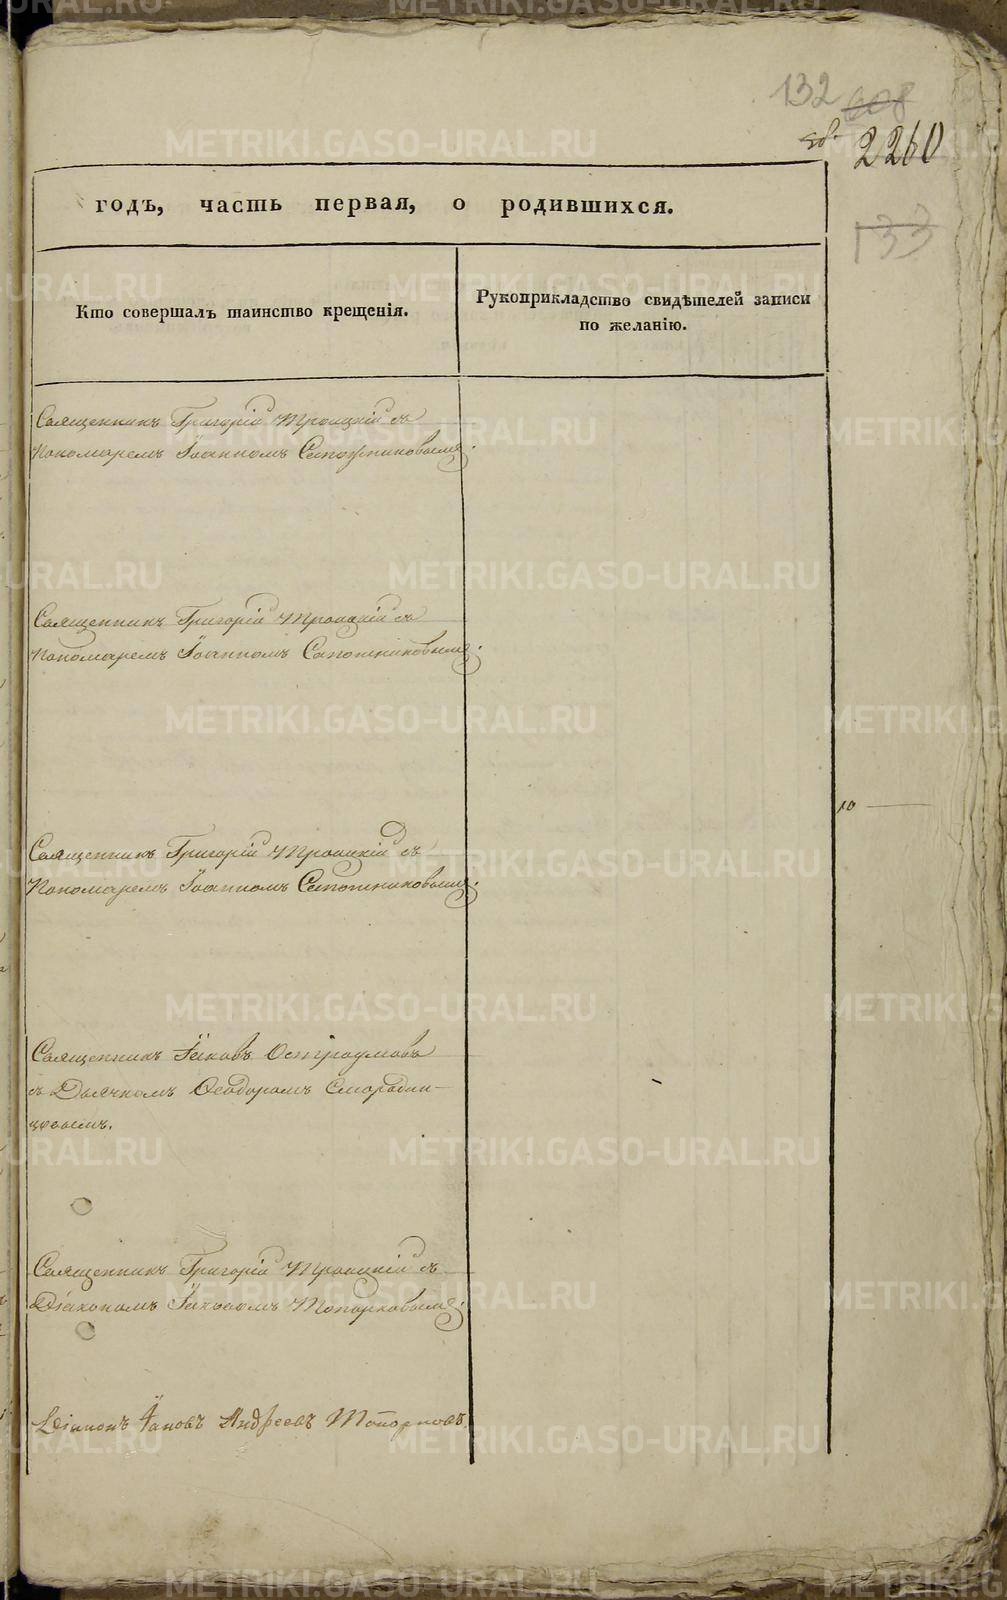 132 608
2260
133
годъ, часть первая, о родившихся.
Кто совершалъ таинство крещенія.
Рукоприкладство свидѣтелей записи
по желанію.
Священникъ Григорій Троицкій съ
Пономаремъ Іоанномъ Сапожниковымъ.
Священникъ Григорій Троицкій съ
Пономаремъ Іоанномъ Сапожниковымъ.
10
Священникъ Григорій Троицкій съ
Пономаремъ Іоанномъ Сапожниковымъ.
Священникъ Іаковъ Остроумовъ
съ Дьячкомъ Ѳеодоромъ Смородин-
цовымъ.
Священникъ Григорій Троицкій съ
Діакономъ Іаковомъ Топорковымъ.
Діаконъ Іаковъ Андреевъ Топорковъ.
METRIKI.GASO-URAL.RU